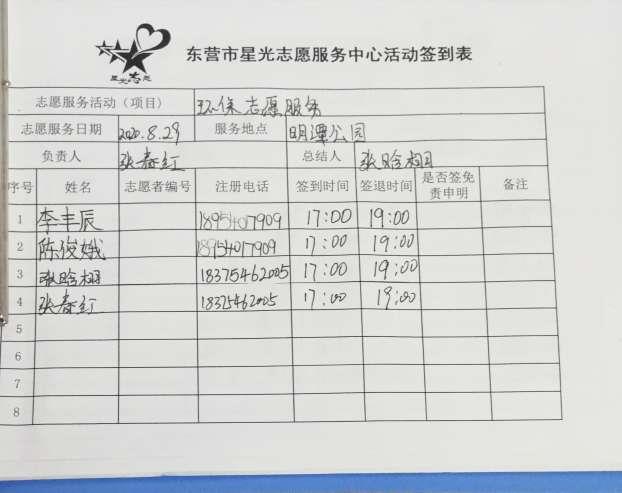 星光志愿
东营市星光志愿服务中心活动签到表
志愿服务活动（项目） 环保志愿服务
志愿服务日期 2020.8.29 服务地点 明潭公园
负责人 张春红 总结人 张晗栩
序号 姓名 志愿者编号 注册电话 签到时间 签退时间 是否签免责申明 备注
1 李丰辰 18954017909 17:00 19:00
2 陈俊娥 18954017909 17:00 19:00
3 张晗栩 18375462005 17:00 19:00
4 张春红 18375462005 17:00 19:00
5
6
7
8